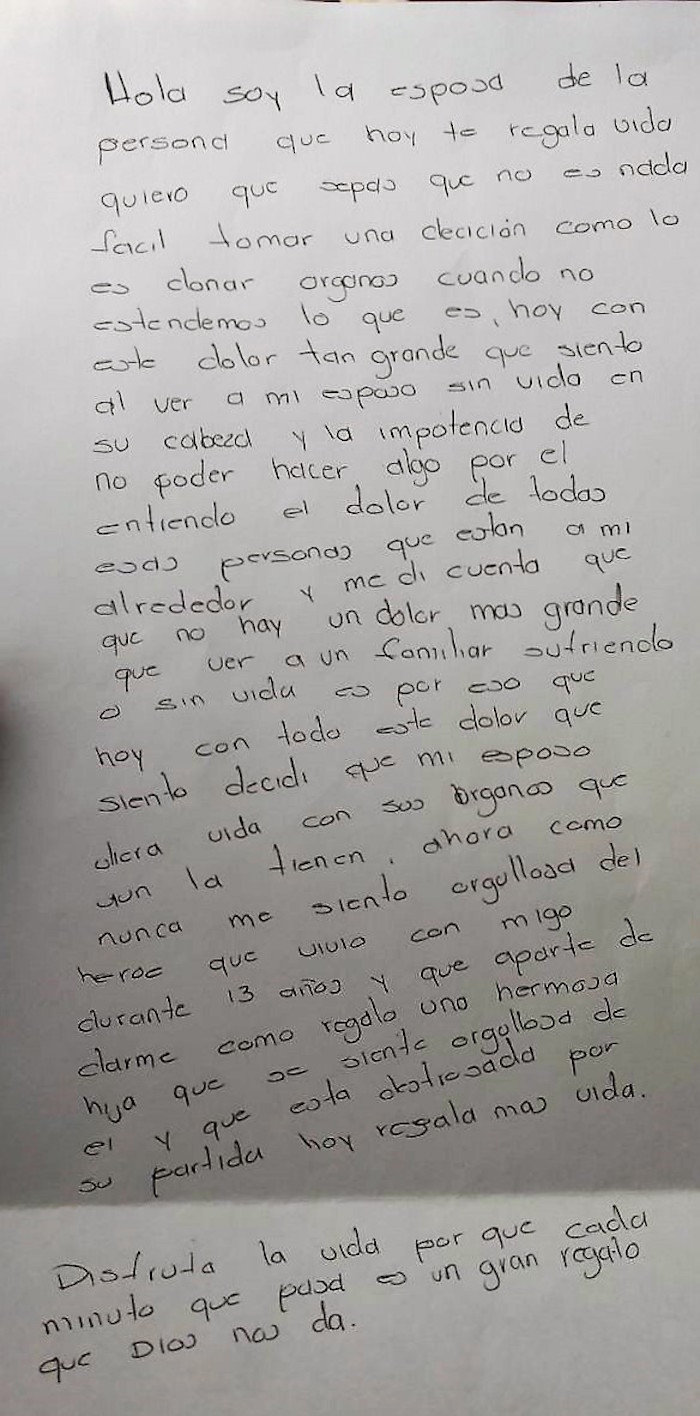 Hola soy la esposa de la
persona que hoy te regala vida
quiero que sepas que no es nada
facil tomar una decición como lo
es donar organos cuando no
estendemos lo que es, hoy con
este dolor tan grande que siento
al ver a mi esposo sin vida en
su cabeza y la impotencia de
no poder hacer algo por el
entiendo el dolor de todas
esas personas que estan a mi
alrededor y me di cuenta que
que no hay un dolor mas grande
que ver a un familiar sufriendo
o sin vida es por eso que
hoy con todo este dolor que
siento decidi que mi esposo
diera vida con sus órganos que
aun la tienen. ahora como
nunca me siento orgullosa del
heroe que vivio con migo
durante 13 años y que aparte de
darme como regalo una hermosa
hija que se siente orgullosa de
el y que esta destrosada por
su partida hoy regala mas vida.
Disfruta la vida por que cada
minuto que pasa es un gran regalo
que Dios nos da.